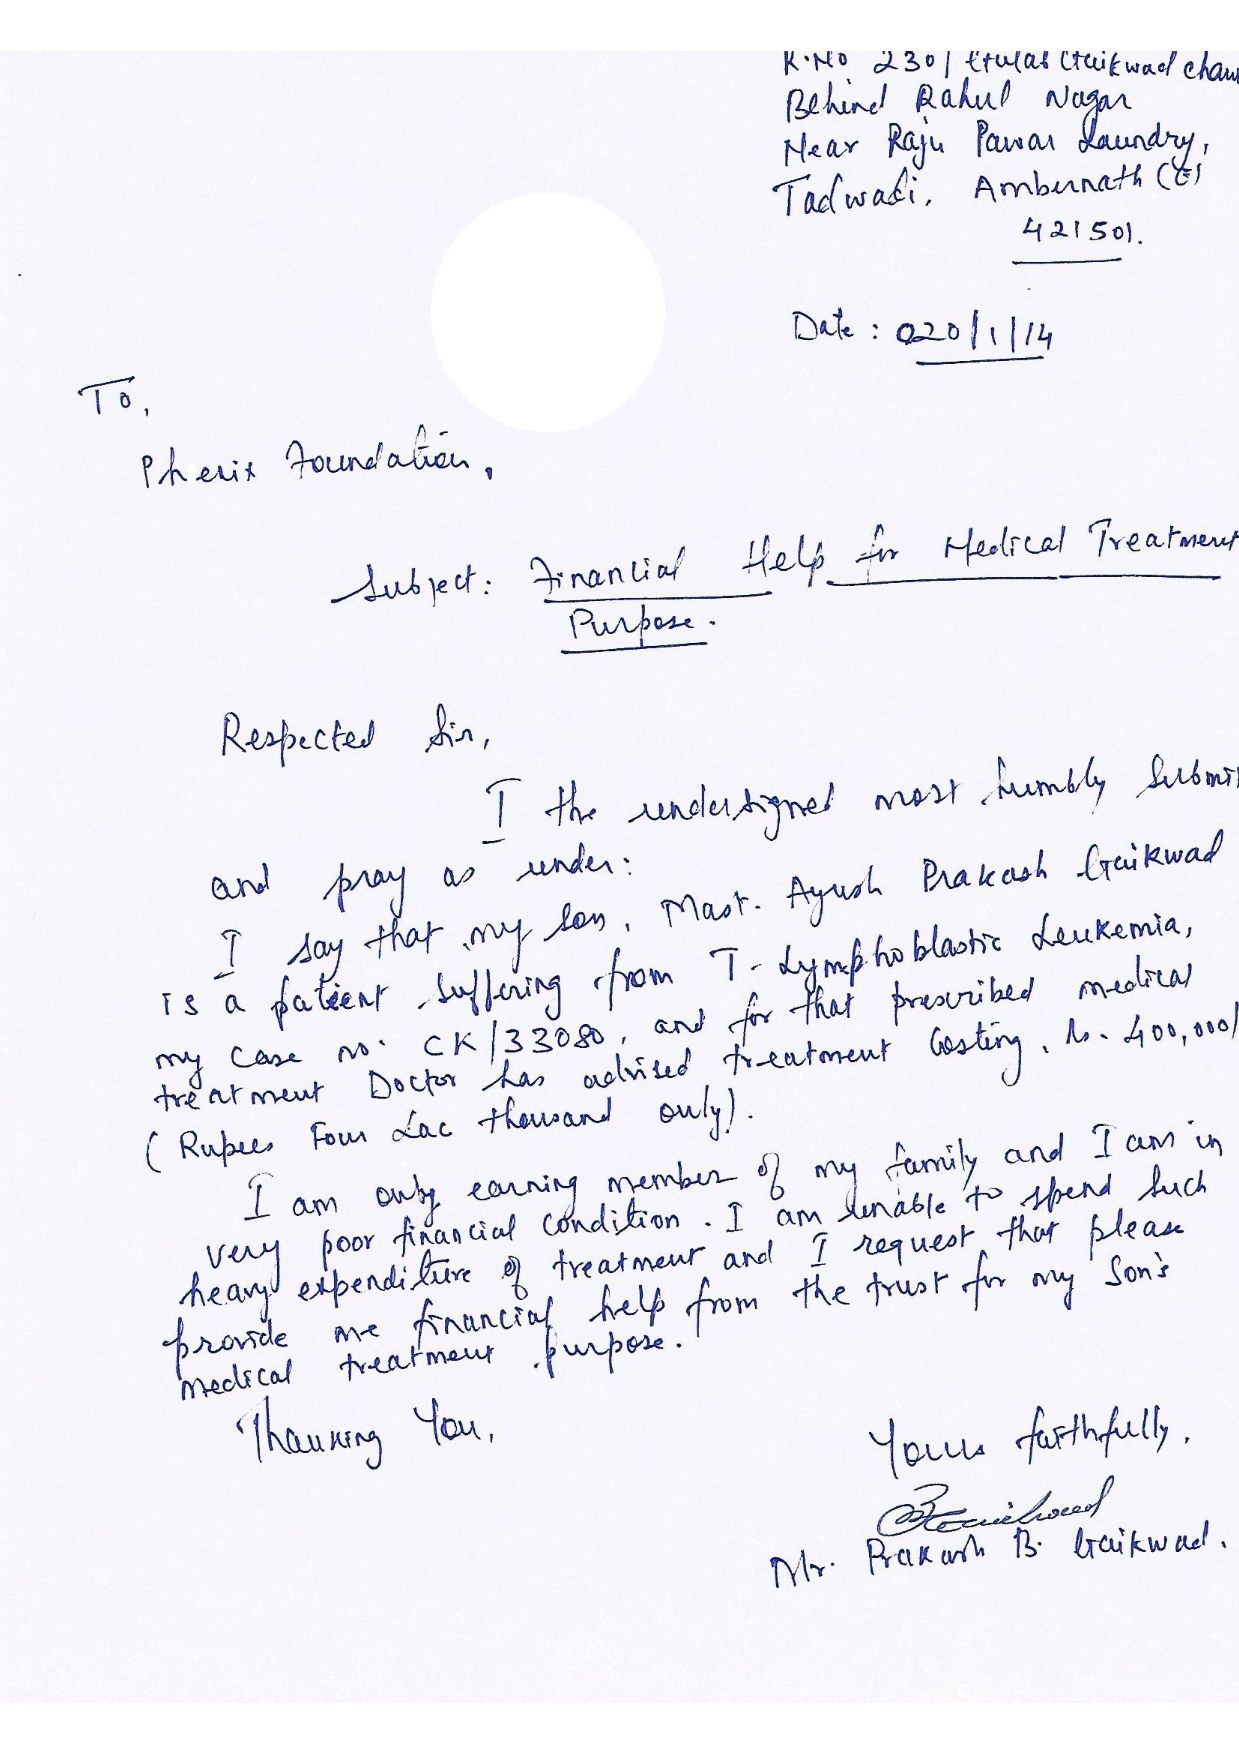 R.No 230/ Gulab Gaikwad
Behind Rahul Nagar
Near Raju Pawar Laundry,
Tadwadi, Ambernath (E)
421501.
Date : 020/1/14
To,
Phenix Foundation,
Subject: Financial Help for Medical Treatment
Purpose.
Respected Sir,
I the undersigned most humbly Submit
and pray as under:
I say that my son, Mast. Ayush Prakash Gaikwad
is a patient suffering from T-Lymphoblastic Leukemia,
my case no. CK/33080, and for that prescribed medical
treatment Doctor has advised treatment Costing, Rs. 400,000/
(Rupees Four Lac thousand only).
I am only earning member of my family and I am in
very poor financial condition. I am unable to spend such
heavy expenditure of treatment and I request that please
provide me financial help from the trust for my Son's
medical treatment purpose.
Thanking You,
Yours faithfully.
Mr. Prakash B. Gaikwad.